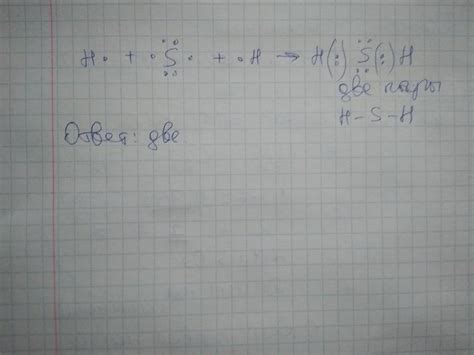 H· + ·S̤̈· + ·H → H(:)S̤̈(:)H
две пары
H-S-H
Ответ: две